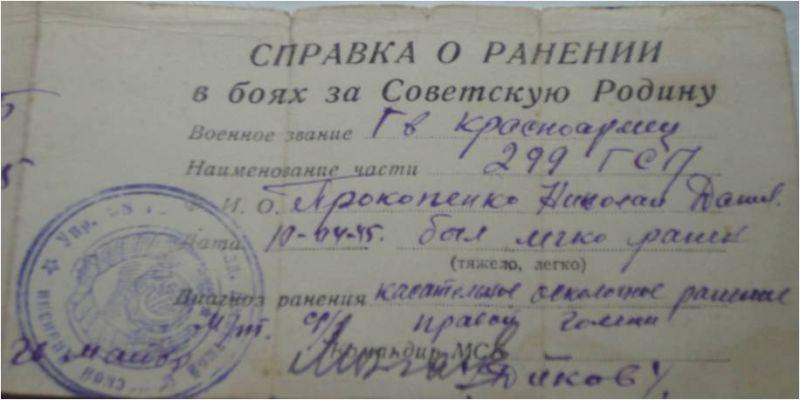 СПРАВКА О РАНЕНИИ
в боях за Советскую Родину
Военное звание Гв красноармеец
Наименование части 299 ГСП
Ф. И. О. Прокопенко Николай Данил.
Дата 10-04-45. был легко ранен
(тяжело, легко)
Диагноз ранения касательное осколочное ранение
м/т. с/3 правой голени
Командир МСБ
гв майор
Дяков